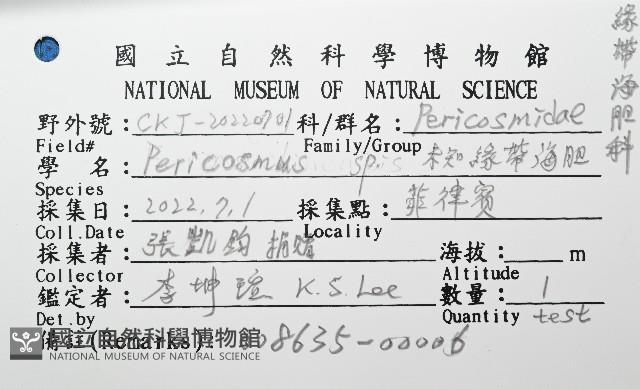 緣帶海胆科
國立自然科學博物館
NATIONAL MUSEUM OF NATURAL SCIENCE
野外號：CKJ-20220701 科/群名：Pericosmidae
Field# Family/Group
學 名：Pericosmus sp. 未知緣帶海胆
Species
採集日：2022.7.1 採集點：菲律賓
Coll.Date Locality
採集者：張凱鈞 捐贈 海拔：m
Collector Altitude
鑑定者：李坤瑄 K.S. Lee 數量：1
Det.by Quantity test
備註(Remarks)： 008635-00006
國立自然科學博物館
NATIONAL MUSEUM OF NATURAL SCIENCE